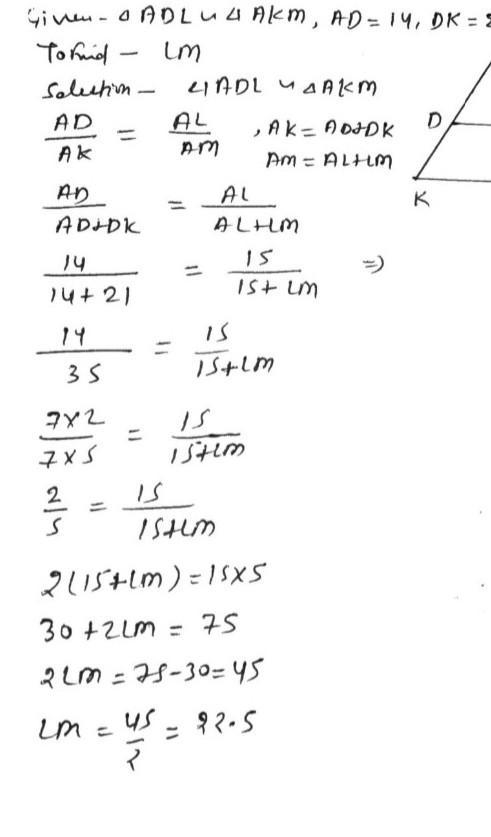 Given - △ ADL ~ △ AKM, AD = 14, DK =
To Find - LM
Solution - △ ADL ~ △ AKM
AD/AK = AL/AM , AK = AD+DK
AM = AL+LM
D
K
AD/AD+DK = AL/AL+LM
14/14+21 = 15/15+LM ⇒
14/35 = 15/15+LM
7×2/7×5 = 15/15+LM
2/5 = 15/15+LM
2(15+LM) = 15×5
30 + 2LM = 75
2LM = 75-30 = 45
LM = 45/2 = 22.5